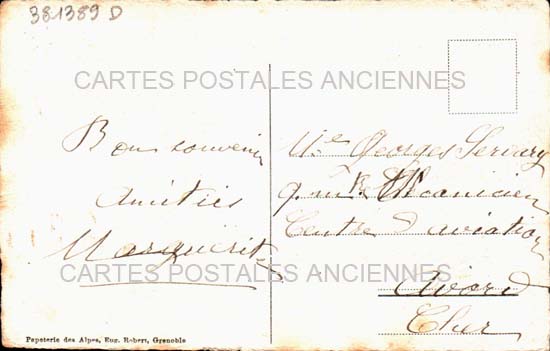 381389 D
CARTES POSTALES ANCIENNES
Bon souvenir
Amitiés
Marguerite
Georges Servary
Mécanicien
Centre d'aviation
Avord
Cher
CARTES POSTALES ANCIENNES
Papeterie des Alpes, Eug. Robert, Grenoble